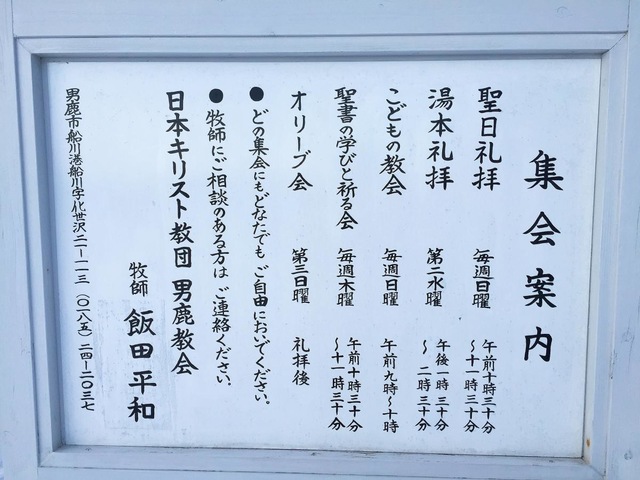 集会案内
聖日礼拝 毎週日曜 午前十時三十分
〜十一時三十分
湯本礼拝 第二水曜 午後一時三十分
〜 二時三十分
こどもの教会 毎週日曜 午前九時〜十時
聖書の学びと祈る会 毎週木曜 午前十時三十分
〜十一時三十分
オリーブ会 第三日曜 礼拝後
●どの集会にもどなたでもご自由においでください。
●牧師にご相談のある方はご連絡ください。
日本キリスト教団 男鹿教会
牧師 飯田平和
男鹿市船川港船川字化世沢二一ー一三 (〇一八五)二四ー二〇三七